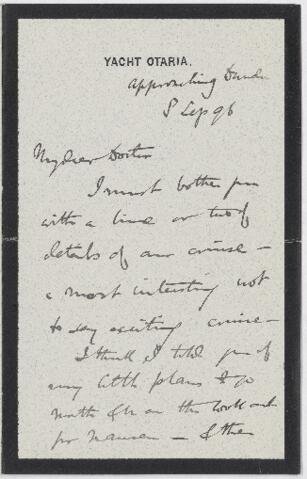 YACHT OTARIA.
approaching
8 Sep 96
My dear Doctor
I must bother you
with a line or two of
details of our cruise —
a most interesting not
to say exciting cruise —
I think I told you of
my little plans to go
north & be on the look out
for Nansen — & then